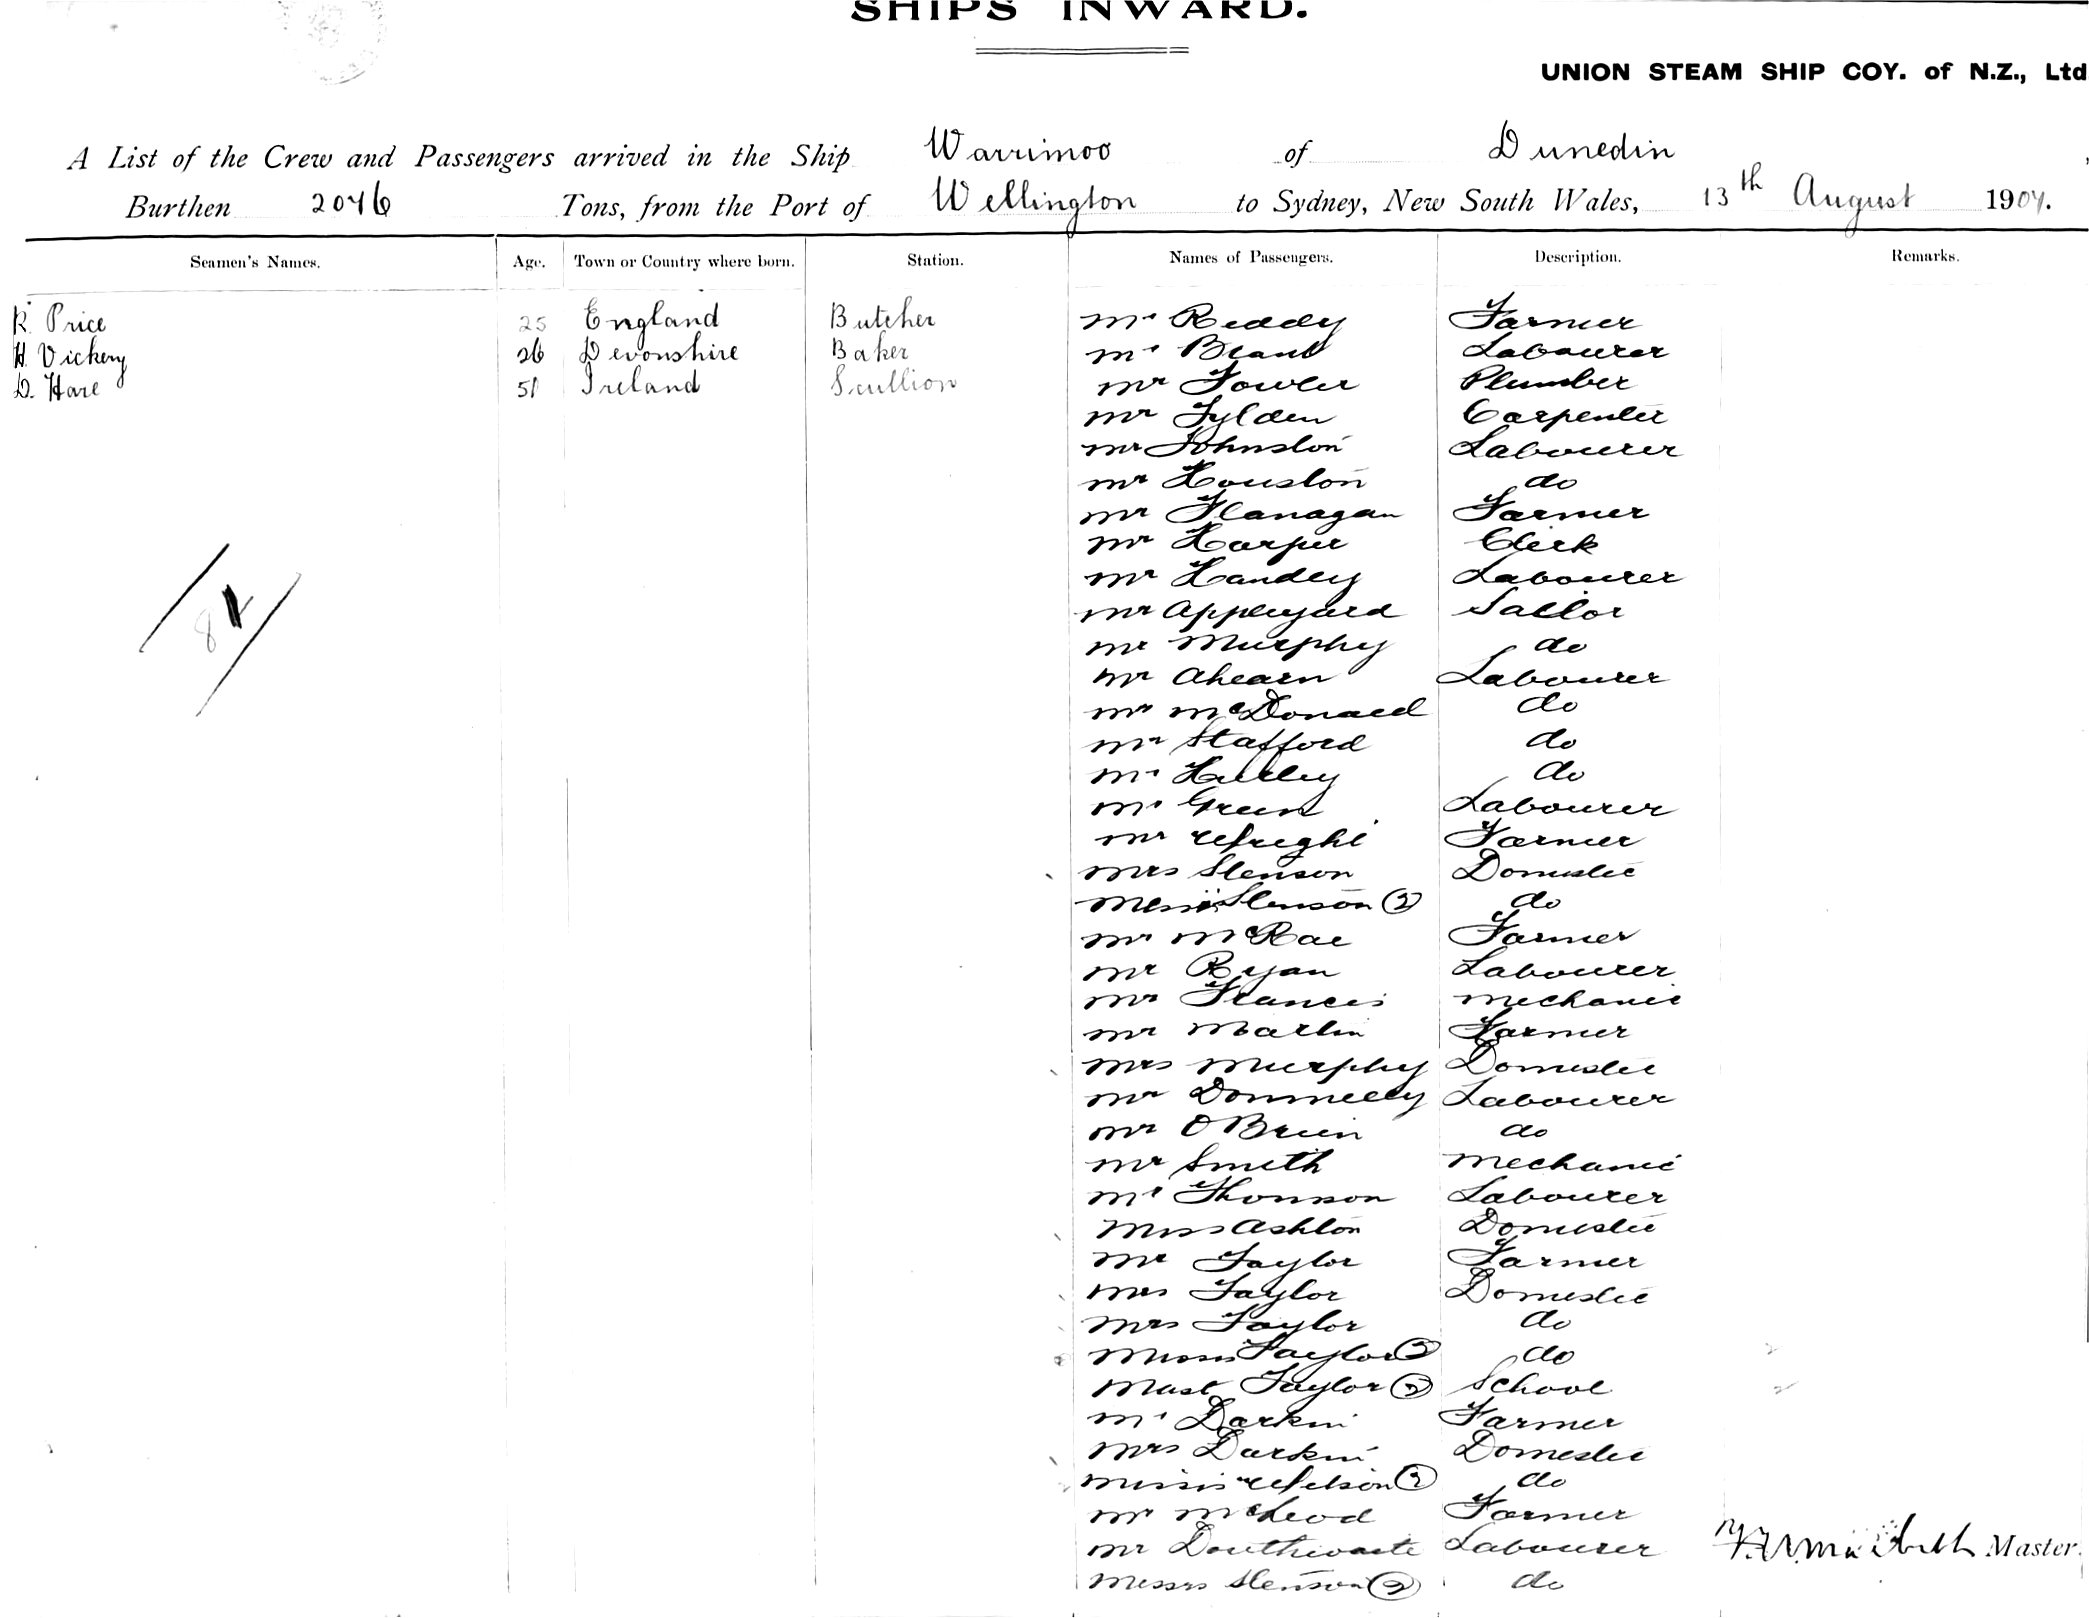 SHIPS INWARD.
UNION STEAM SHIP COY. of N.Z., Ltd
A List of the Crew and Passengers arrived in the Ship Warrimoo of Dunedin,
Burthen 2076 Tons, from the Port of Wellington to Sydney, New South Wales, 13th August 1904.
Seamen's Names. Age. Town or Country where born. Station. Names of Passengers. Description. Remarks.
R. Price 25 England Butcher Mr Reddy Farmer
H. Vickery 26 Devonshire Baker Mr Labourer
D. Hare 51 Ireland Scullion Mr Fowler Plumber
Mr Tylden Carpenter
Mr Johnston Labourer
Mr Houston do
Mr Flanagan Farmer
Mr Harper Clerk
Mr Handley Labourer
Mr Appleyard Sailor
Mr Murphy do
Mr Ahearn Labourer
Mr McDonald do
Mr Stafford do
Mr Hurley do
Mr Green Labourer
Mr Farmer
Mrs Stenson Domestic
Stenson (2) do
Mr McRae Farmer
Mr Ryan Labourer
Mr Francis Mechanic
Mr Martin Farmer
Mrs Murphy Domestic
Mr Donnelly Labourer
Mr O'Brien do
Mr Smith Mechanic
Mr Thomson Labourer
Miss Ashton Domestic
Mr Taylor Farmer
Mrs Taylor Domestic
Mrs Taylor do
Misses Taylor (2) do
Mast Taylor (2) School
Mr Darkin Farmer
Mrs Darkin Domestic
Misses Nelson (2) do
Mr McLeod Farmer
Mr Douthwaite Labourer Master.
Messrs Stenson (2) do